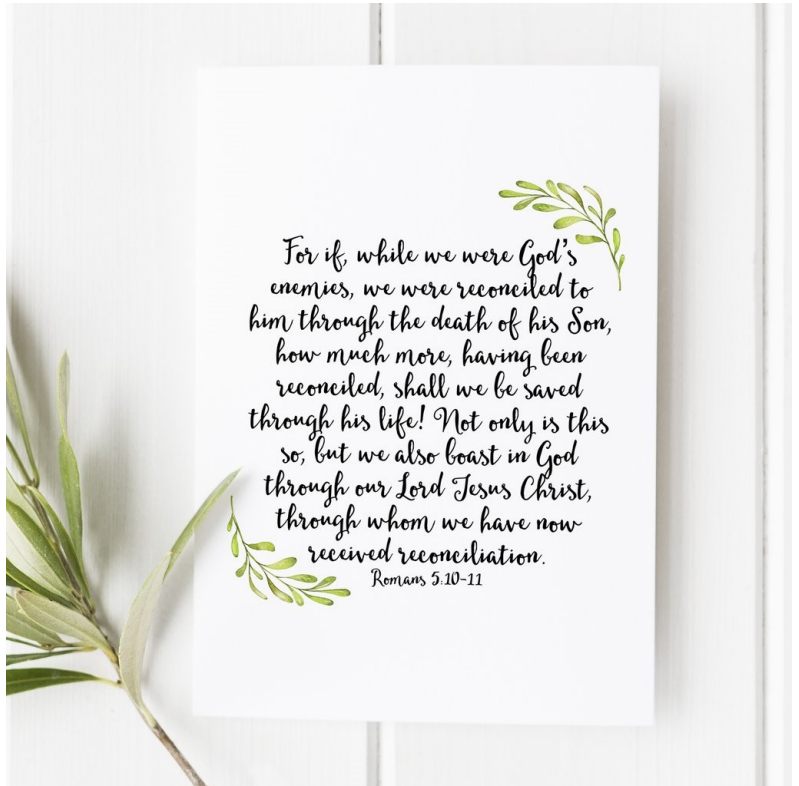 For if, while we were God's
enemies, we were reconciled to
him through the death of his Son,
how much more, having been
reconciled, shall we be saved
through his life! Not only is this
so, but we also boast in God
through our Lord Jesus Christ,
through whom we have now
received reconciliation.
Romans 5:10-11